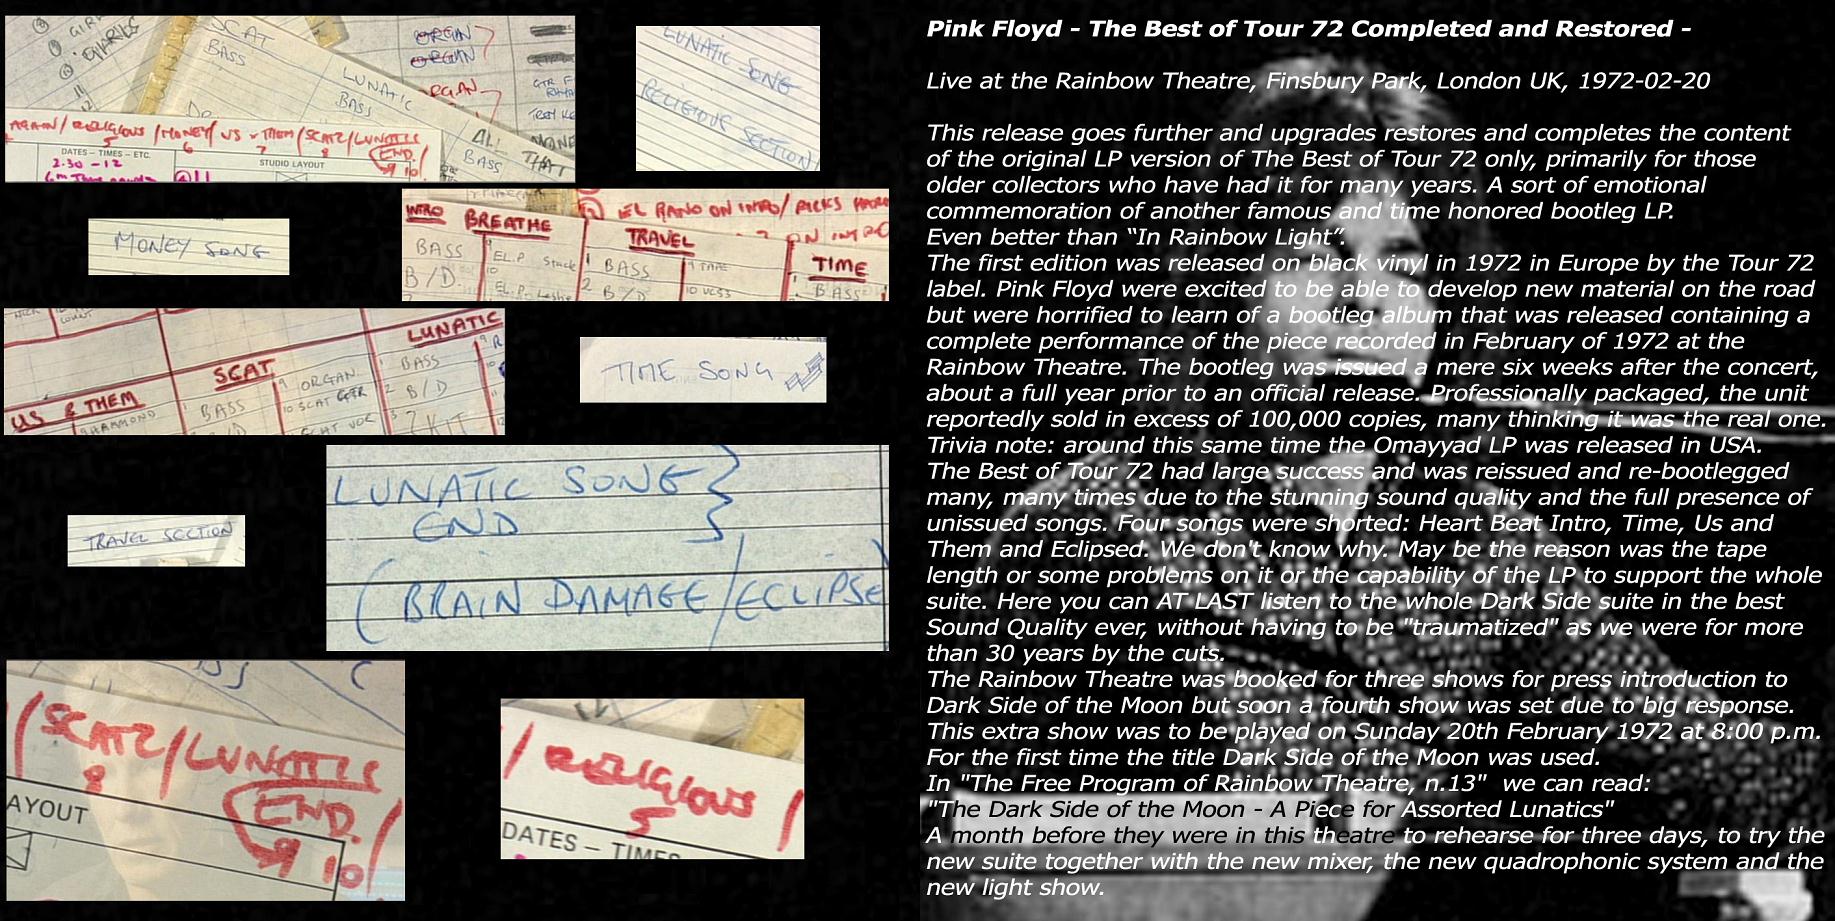 SCAT
BASS
LUNATIC
BASS
ORGAN
ORGAN
ORGAN
ALL
BASS
AGAIN / RELIGIOUS / MONEY / US & THEM / SCAT 2 / LUNATIC
5 6 7 8 END. 9 10
DATES – TIMES – ETC.
STUDIO LAYOUT
2.30 - 12
LUNATIC SONG
RELIGIOUS SECTION
MONEY SONG
INTRO BREATHE
TRAVEL
TIME
BASS
B/D.
1 BASS
2 B/D
BASS
LUNATIC
SCAT
US & THEM
HAMMOND
BASS
9 ORGAN
10 SCAT GTR
SCAT VOC
1 BASS
2 B/D
3 7 KIT
TIME SONG
TRAVEL SECTION
LUNATIC SONG
END
(BRAIN DAMAGE/ECLIPSE)
/SCAT2/LUNATIC
8 END. 9 10
AYOUT
/ RELIGIOUS /
5
DATES – TIMES
Pink Floyd - The Best of Tour 72 Completed and Restored -
Live at the Rainbow Theatre, Finsbury Park, London UK, 1972-02-20
This release goes further and upgrades restores and completes the content
of the original LP version of The Best of Tour 72 only, primarily for those
older collectors who have had it for many years. A sort of emotional
commemoration of another famous and time honored bootleg LP.
Even better than “In Rainbow Light”.
The first edition was released on black vinyl in 1972 in Europe by the Tour 72
label. Pink Floyd were excited to be able to develop new material on the road
but were horrified to learn of a bootleg album that was released containing a
complete performance of the piece recorded in February of 1972 at the
Rainbow Theatre. The bootleg was issued a mere six weeks after the concert,
about a full year prior to an official release. Professionally packaged, the unit
reportedly sold in excess of 100,000 copies, many thinking it was the real one.
Trivia note: around this same time the Omayyad LP was released in USA.
The Best of Tour 72 had large success and was reissued and re-bootlegged
many, many times due to the stunning sound quality and the full presence of
unissued songs. Four songs were shorted: Heart Beat Intro, Time, Us and
Them and Eclipsed. We don't know why. May be the reason was the tape
length or some problems on it or the capability of the LP to support the whole
suite. Here you can AT LAST listen to the whole Dark Side suite in the best
Sound Quality ever, without having to be "traumatized" as we were for more
than 30 years by the cuts.
The Rainbow Theatre was booked for three shows for press introduction to
Dark Side of the Moon but soon a fourth show was set due to big response.
This extra show was to be played on Sunday 20th February 1972 at 8:00 p.m.
For the first time the title Dark Side of the Moon was used.
In "The Free Program of Rainbow Theatre, n.13" we can read:
"The Dark Side of the Moon - A Piece for Assorted Lunatics"
A month before they were in this theatre to rehearse for three days, to try the
new suite together with the new mixer, the new quadrophonic system and the
new light show.